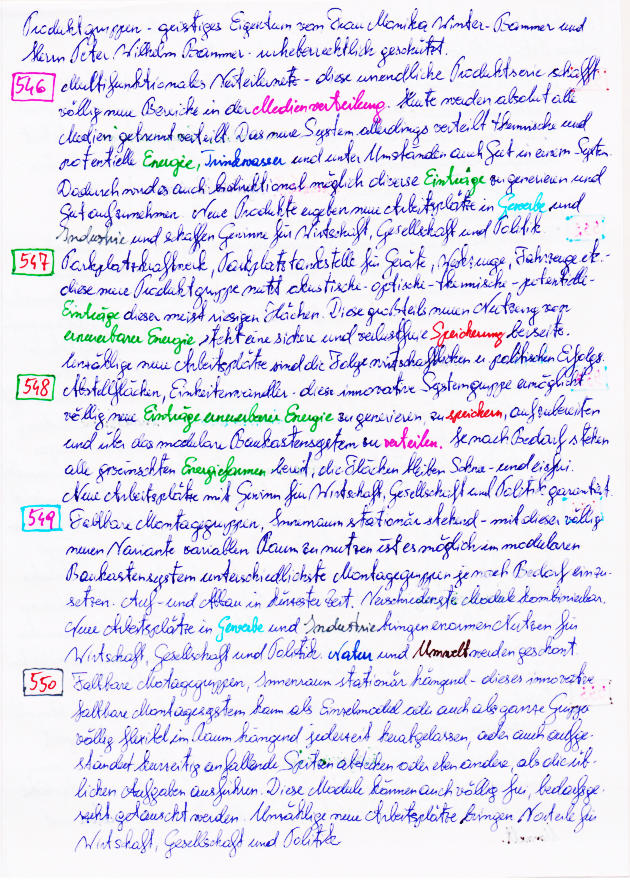 Produktgruppen - geistiges Eigentum von Frau Monika Winter-Bammer und
Herrn Peter Wilhelm Bammer - urheberrechtlich geschützt.
546 Multifunktionales Verteilernetz - diese unendliche Produktserie schafft
völlig neue Bereiche in der Medienverteilung. Heute werden absolut alle
Medien getrennt verteilt. Das neue System allerdings verteilt thermische und
potentielle Energie, Trinkwasser und unter Umständen auch Gut in einem System.
Dadurch wird es auch bidirektional möglich diverse Einträge zu generieren und
Gut aufzunehmen. Neue Produkte ergeben neue Arbeitsplätze in Gewerbe und
Industrie und schaffen Gewinne für Wirtschaft, Gesellschaft und Politik
547 Parkplatzkraftwerk, Parkplatztankstelle für Geräte, Werkzeuge, Fahrzeuge etc-
diese neue Produktgruppe nutzt akustische - optische - thermische - potentielle -
Einträge dieser meist riesigen Flächen. Diese größtenteils neuen Nutzung von
erneuerbarer Energie steht eine sichere und verlustfreie Speicherung bereit.
Unzählige neue Arbeitsplätze sind die Folge wirtschaftlichen u politischen Erfolgs.
548 Abstellflächen, Einheitenwandler - diese innovative Systemgruppe ermöglicht
völlig neue Einträge erneuerbarer Energie zu generieren, zu speichern, aufzubereiten
und über das modulare Baukastensystem zu verteilen. Je nach Bedarf stehen
alle gewünschten Energieformen bereit, die Flächen bleiben Schnee- und eisfrei.
Neue Arbeitsplätze mit Gewinn für Wirtschaft, Gesellschaft und Politik garantiert.
549 Faltbare Montagegruppen, Innenraum stationär stehend - mit dieser völlig
neuen Variante variablen Raum zu nutzen ist es möglich im modularen
Baukastensystem unterschiedlichste Montagegruppen je nach Bedarf einzu-
setzen. Auf- und Abbau in kürzester Zeit. Verschiedenste Module kombinierbar.
Neue Arbeitsplätze in Gewerbe und Industrie bringen enormen Nutzen für
Wirtschaft, Gesellschaft und Politik. Natur und Umwelt werden geschont.
550 Faltbare Motagegruppen, Innenraum stationär hängend - dieses innovative
faltbare Montagesystem kann als Einzelmodul oder auch als ganze Gruppe
völlig flexibel im Raum hängend jederzeit herabgelassen, oder auch aufge-
ständert kurzzeitig anfallende Spitzen abdecken oder eben andere, als die üb-
lichen Aufgaben ausführen. Diese Module können auch völlig frei, bedarfsge-
recht getauscht werden. Unzählige neue Arbeitsplätze bringen Vorteile für
Wirtschaft, Gesellschaft und Politik